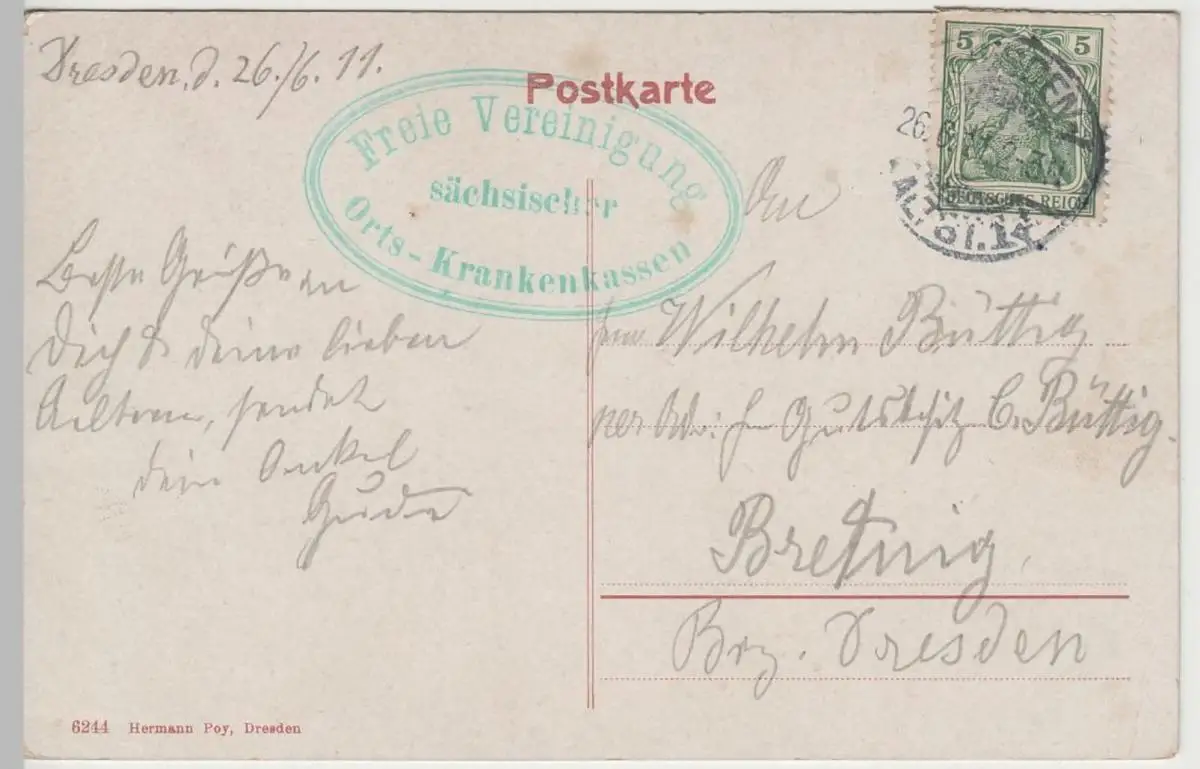 Dresden, d. 26./6. 11.
Postkarte
Freie Vereinigung
sächsischer
Orts-Krankenkassen
5 5
DEUTSCHES REICH
26. 6. 11
ALTST. 14
An
Wilhelm Büttig
per Adr: Gutsbesitz C. Büttig.
Bretnig,
Brz. Dresden
Beste Grüße an
Dich & deine lieben
Aeltern, sendet
dein Onkel
6244 Hermann Poy, Dresden